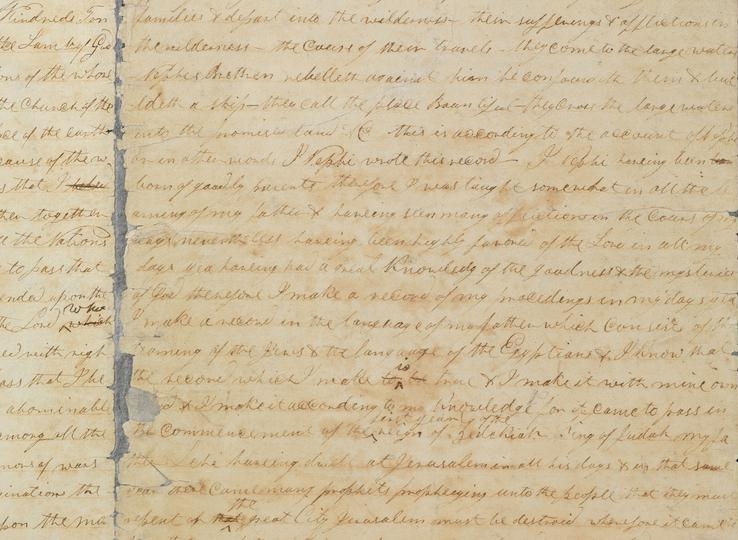 Kindreds Ton
the Lamb of God
one of the whose
the Church of the
face of the earth
because of the w
s that I
ther together
all the Nations
to pass that
ended upon the
the Lord which
ed with righ
pass that I be
abominable
among all the
mors of wars
ination the
upon the mo
families & depart into the wilderness their sufferings & afflictions in
the wilderness the Course of their travels they come to the large waters
Nephis Brethren rebelleth against him he confoundeth them & buil
ldeth a ship they call the place Bountiful they cross the large waters
into the promised land &C this is according to the account of Nephi
or in other words I Nephi wrote this record I Nephi having been
born of goodly parents therefore I was taught somewhat in all the le
arning of my father & having seen many afflictions in the Course of m
days nevertheless having been highly favored of the Lord in all my
days yea having had a great Knowledg of the goodness & the mysteries
of God therefore I make a record of my procedings in my days yea
I make a record in the language of my father which consists of the
learning of the Jews & the language of the Egyptians & I know that
the record which I make is true & I make it with mine own
& I make it according to my Knowledge for it came to pass in
the commencement of the first year of the reign of Zedekiah King of Judah my fa
Lehi having dwelt at Jerusalem in all his days & in that same
year there came many prophets prophesying unto the people that they must
repent or the great City Jerusalem must be destroid wherefore it came